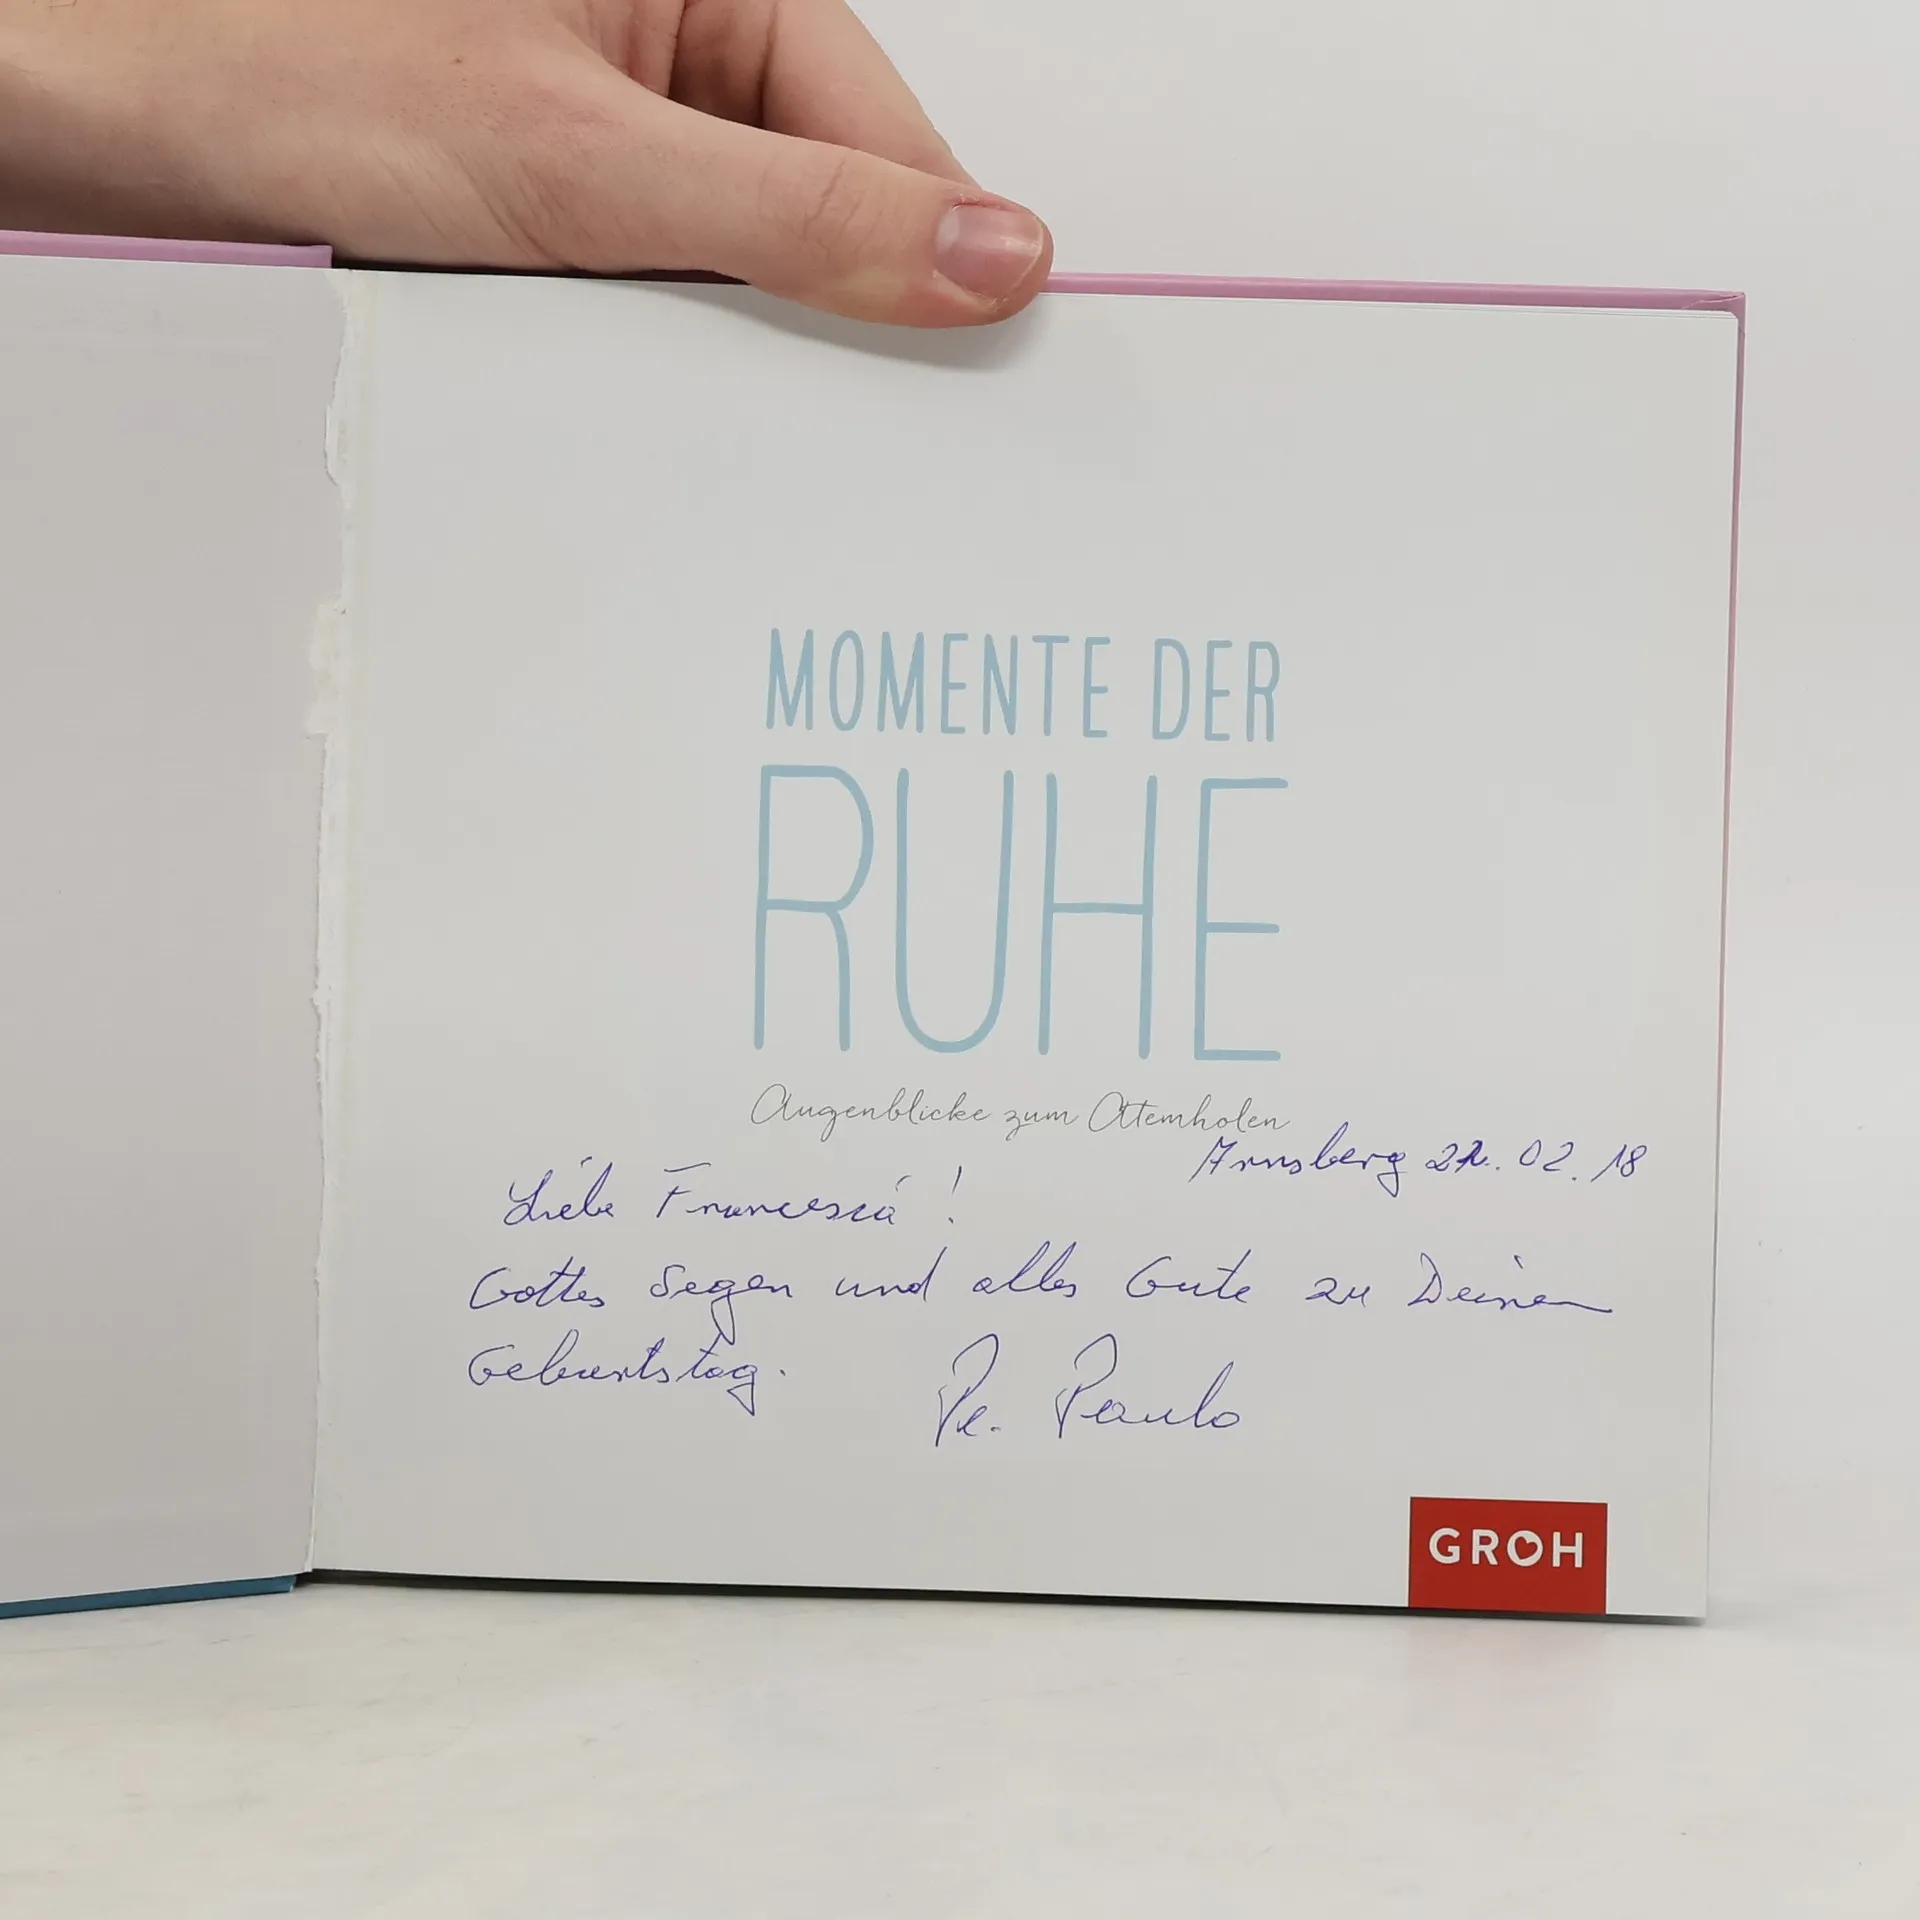 MOMENTE DER
RUHE
Augenblicke zum Atemholen
Arnsberg 22.02.18
Liebe Francesca!
Gottes Segen und alles Gute zu Deinem
Geburtstag.
Pe. Paulo
GROH